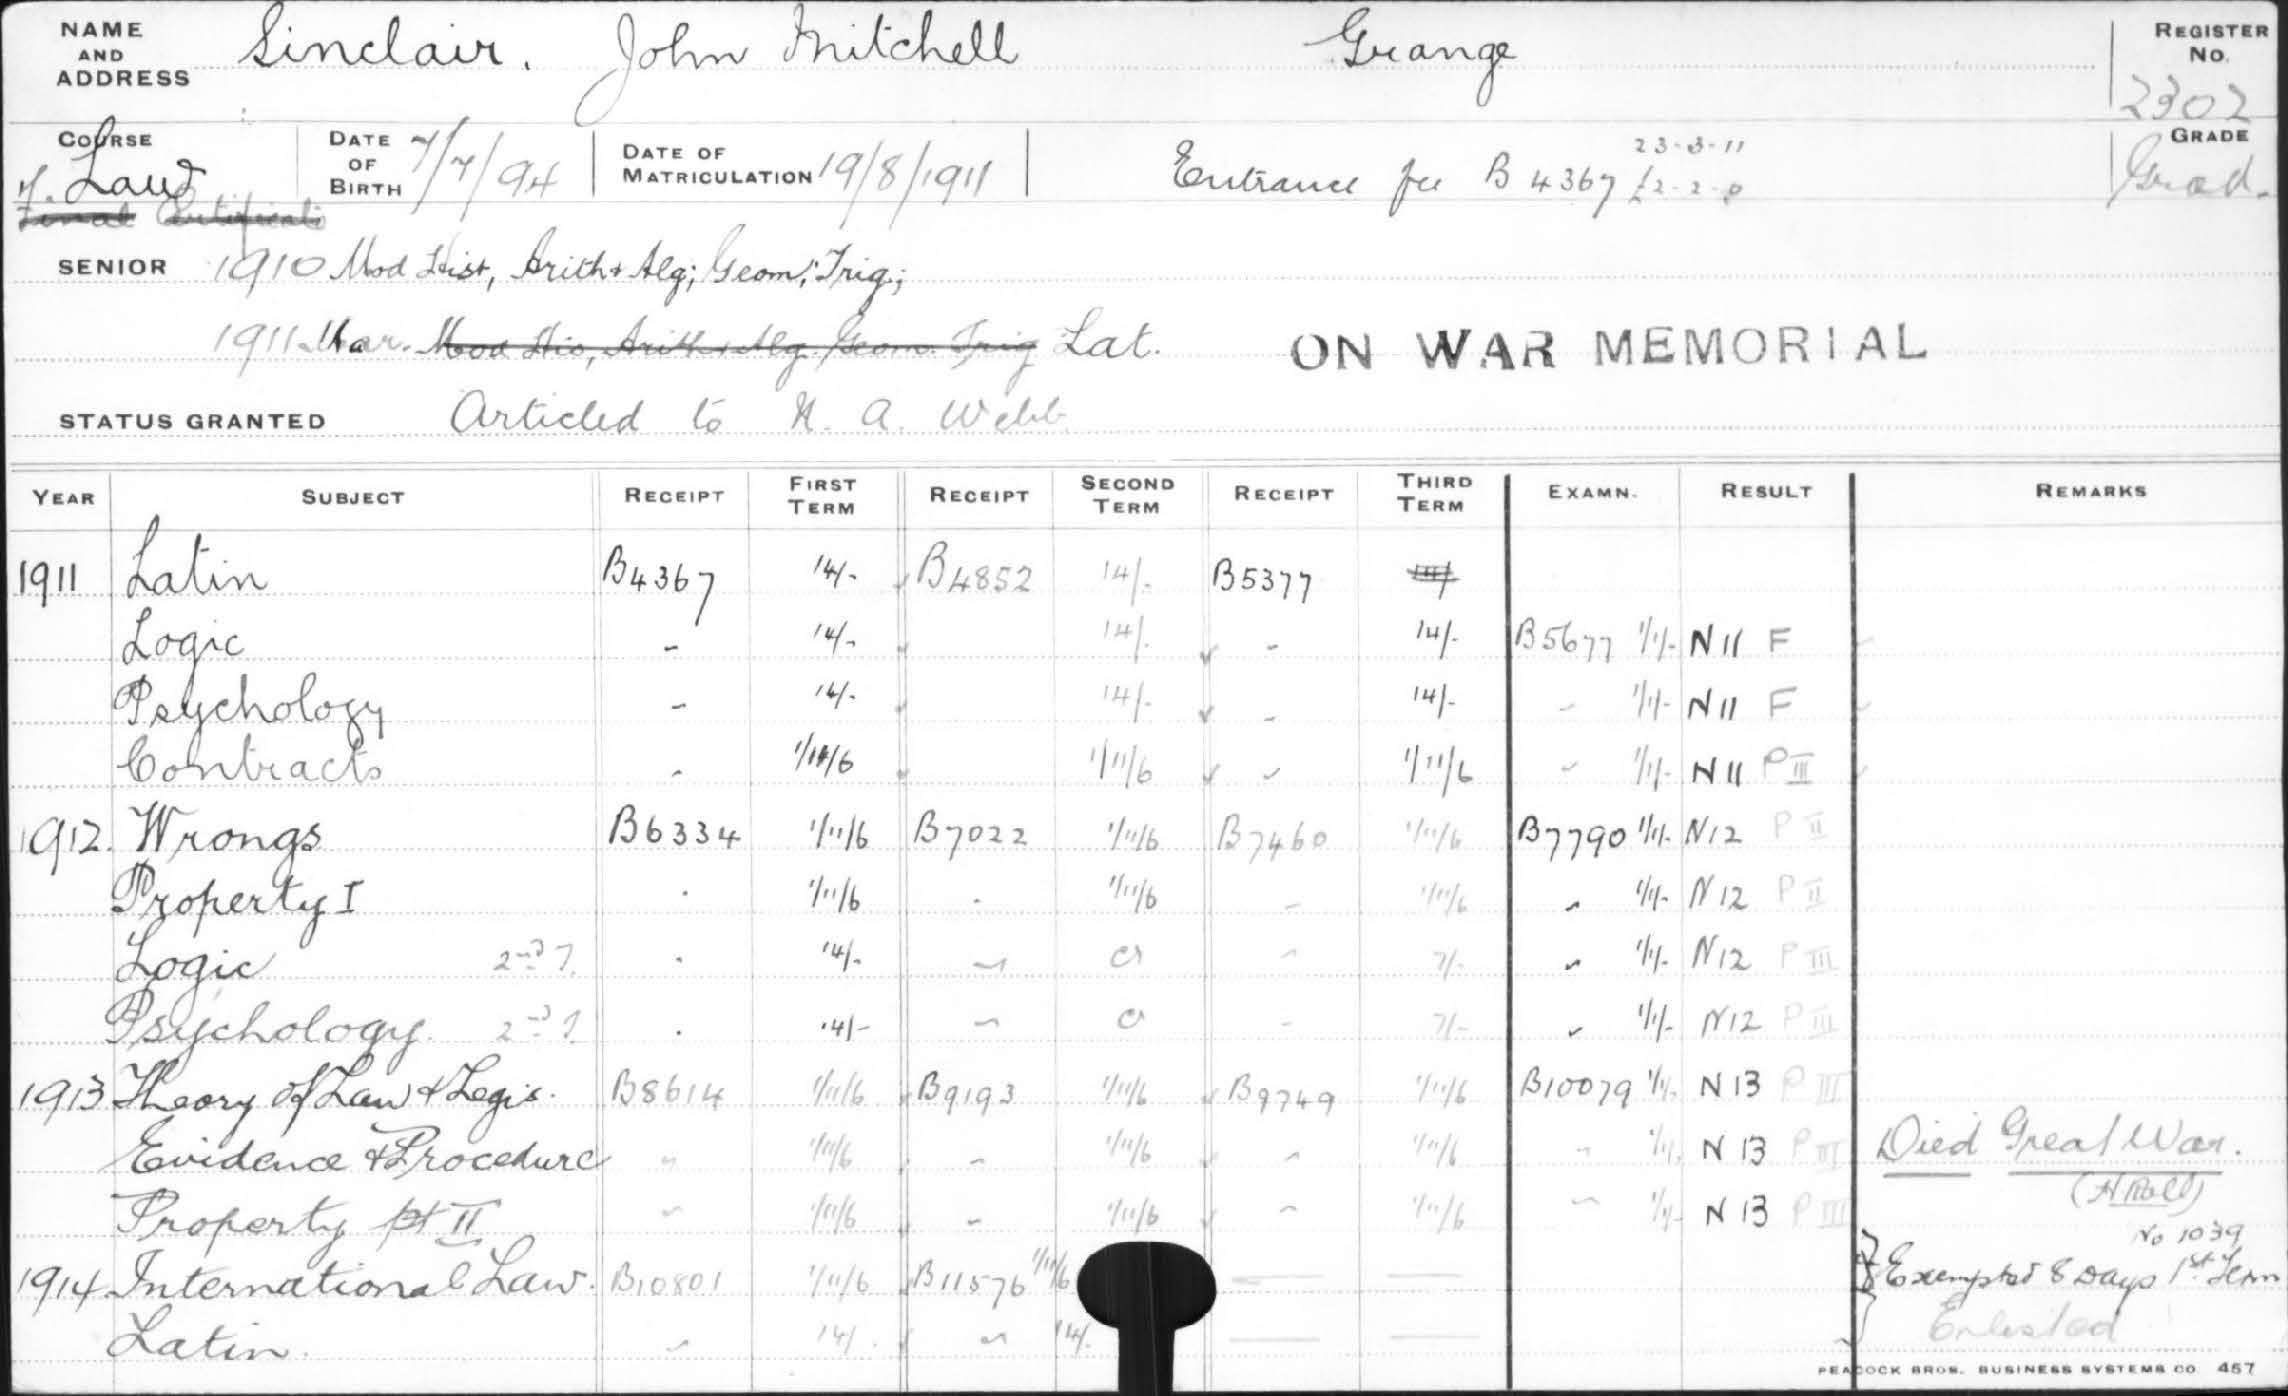 NAME AND ADDRESS Sinclair, John Mitchell Grange REGISTER No. 2302
COURSE Laws DATE OF BIRTH 7/7/94 DATE OF MATRICULATION 19/8/1911 Entrance fee B 4367 23-3-11 £2-2-0 GRADE Grad.
Final Certificate
SENIOR 1910 Mod Hist, Arith & Alg; Geom; Trig;
1911 Mar. Mod His, Arith & Alg. Geom. Trig Lat. ON WAR MEMORIAL
STATUS GRANTED Articled to N. A. Webb
YEAR SUBJECT RECEIPT FIRST TERM RECEIPT SECOND TERM RECEIPT THIRD TERM EXAMN. RESULT REMARKS
1911 Latin B4367 14/- B4852 14/- B5377 14/
Logic - 14/- 14/- - 14/- B5677 1/1/- N11 F
Psychology - 14/- 14/- - 14/- - 1/1/- N11 F
Contracts - 1/11/6 1/11/6 - 1/11/6 - 1/1/- N11 P III
1912. Wrongs B6334 1/11/6 B7022 1/11/6 B7460 1/11/6 B7790 1/1/- N12 P II
Property I . 1/11/6 . 1/11/6 - 1/11/6 - 1/1/- N12 P II
Logic 2nd . 14/- - cr - 7/- - 1/1/- N12 P III
Psychology. 2nd . 14/- - cr - 7/- - 1/1/- N12 P III
1913 Theory of Law & Legis. B8614 1/11/6 B9193 1/11/6 B9749 1/11/6 B10079 1/1/- N13 P III
Evidence & Procedure - 1/11/6 - 1/11/6 - 1/11/6 - 1/1/- N13 P III Died Great War.
(H Roll)
Property pt II - 1/11/6 - 1/11/6 - 1/11/6 - 1/1/- N13 P III
No 1039
1914 International Law. B10801 1/11/6 B11576 1/11/6 Exempted 8 Days 1st Term
Latin. - 14/- - 14/- Enlisted
PEACOCK BROS. BUSINESS SYSTEMS CO. 457